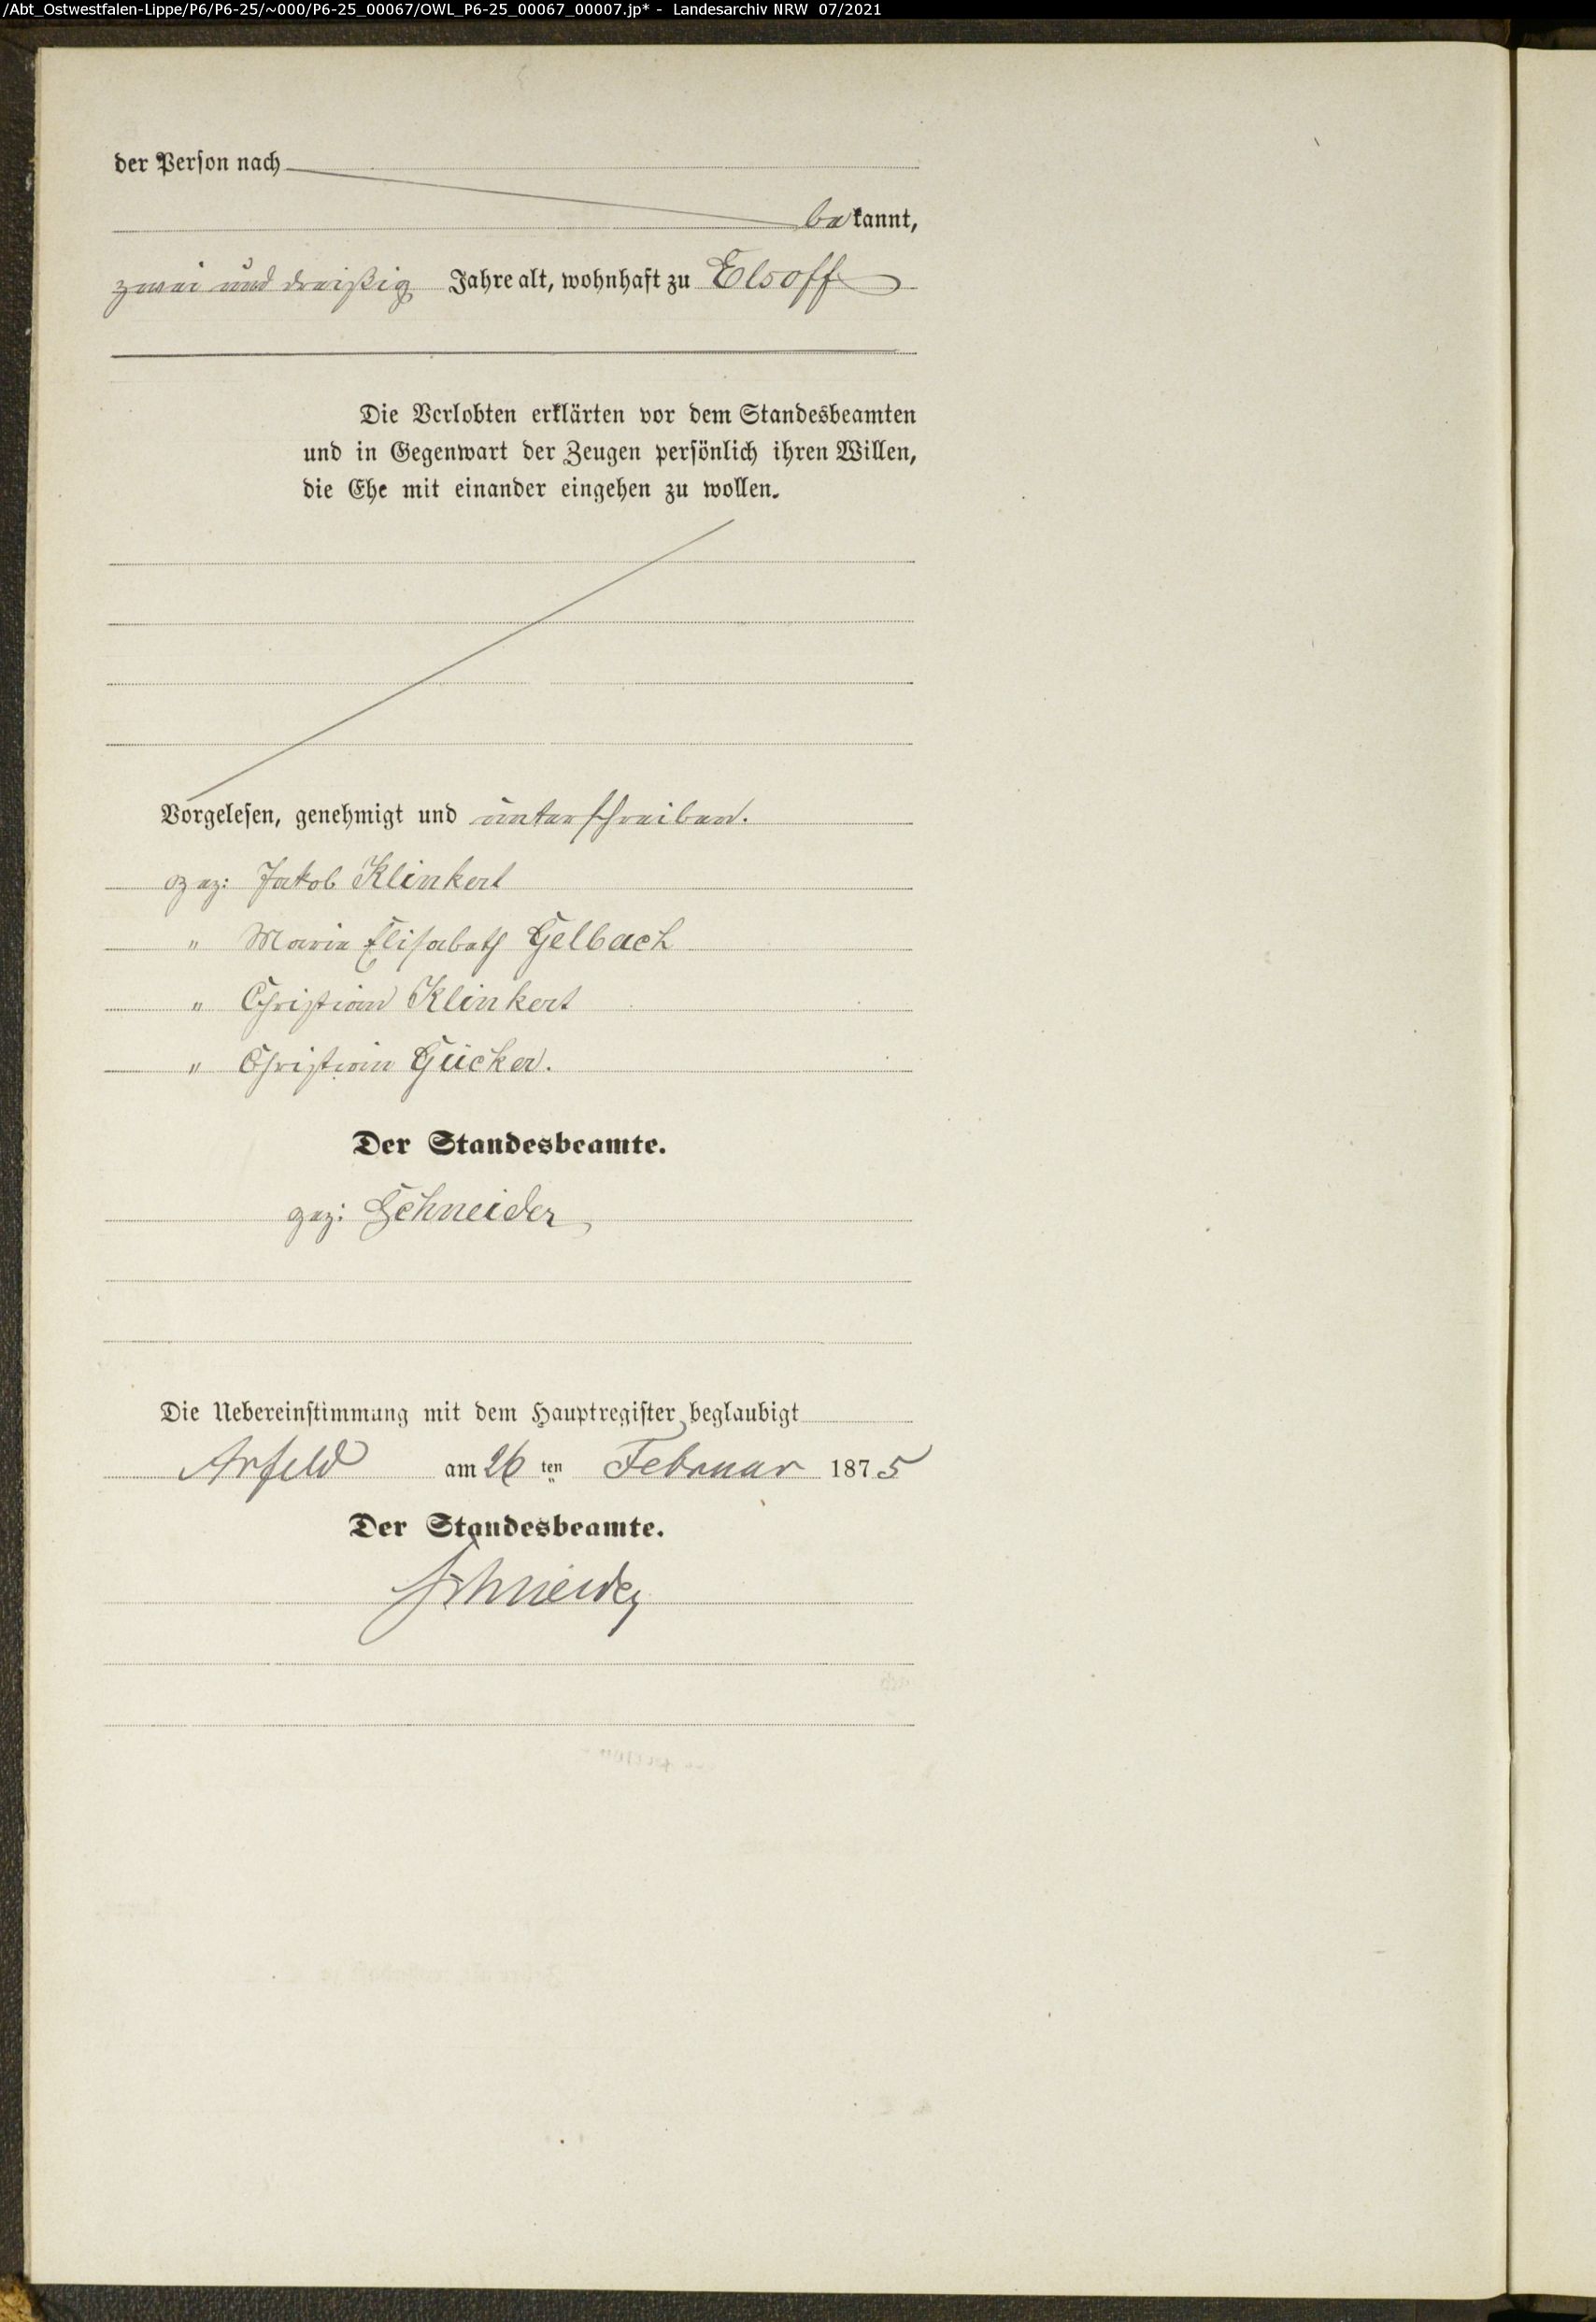 /Abt_Ostwestfalen-Lippe/P6/P6-25/~000/P6-25_00067/OWL_P6-25_00067_00007.jp* - Landesarchiv NRW 07/2021
der Person nach
bekannt,
zwei und dreißig Jahre alt, wohnhaft zu Elsoff
Die Verlobten erklärten vor dem Standesbeamten
und in Gegenwart der Zeugen persönlich ihren Willen,
die Ehe mit einander eingehen zu wollen.
Vorgelesen, genehmigt und unterschreiben.
gez: Jakob Klinkert
" Maria Elisabeth Gelbach
" Christian Klinkert
" Christian Gücker.
Der Standesbeamte.
gez: Schneider
Die Uebereinstimmung mit dem Hauptregister beglaubigt
Arfeld am 26 ten Februar 1875
Der Standesbeamte.
Schneider